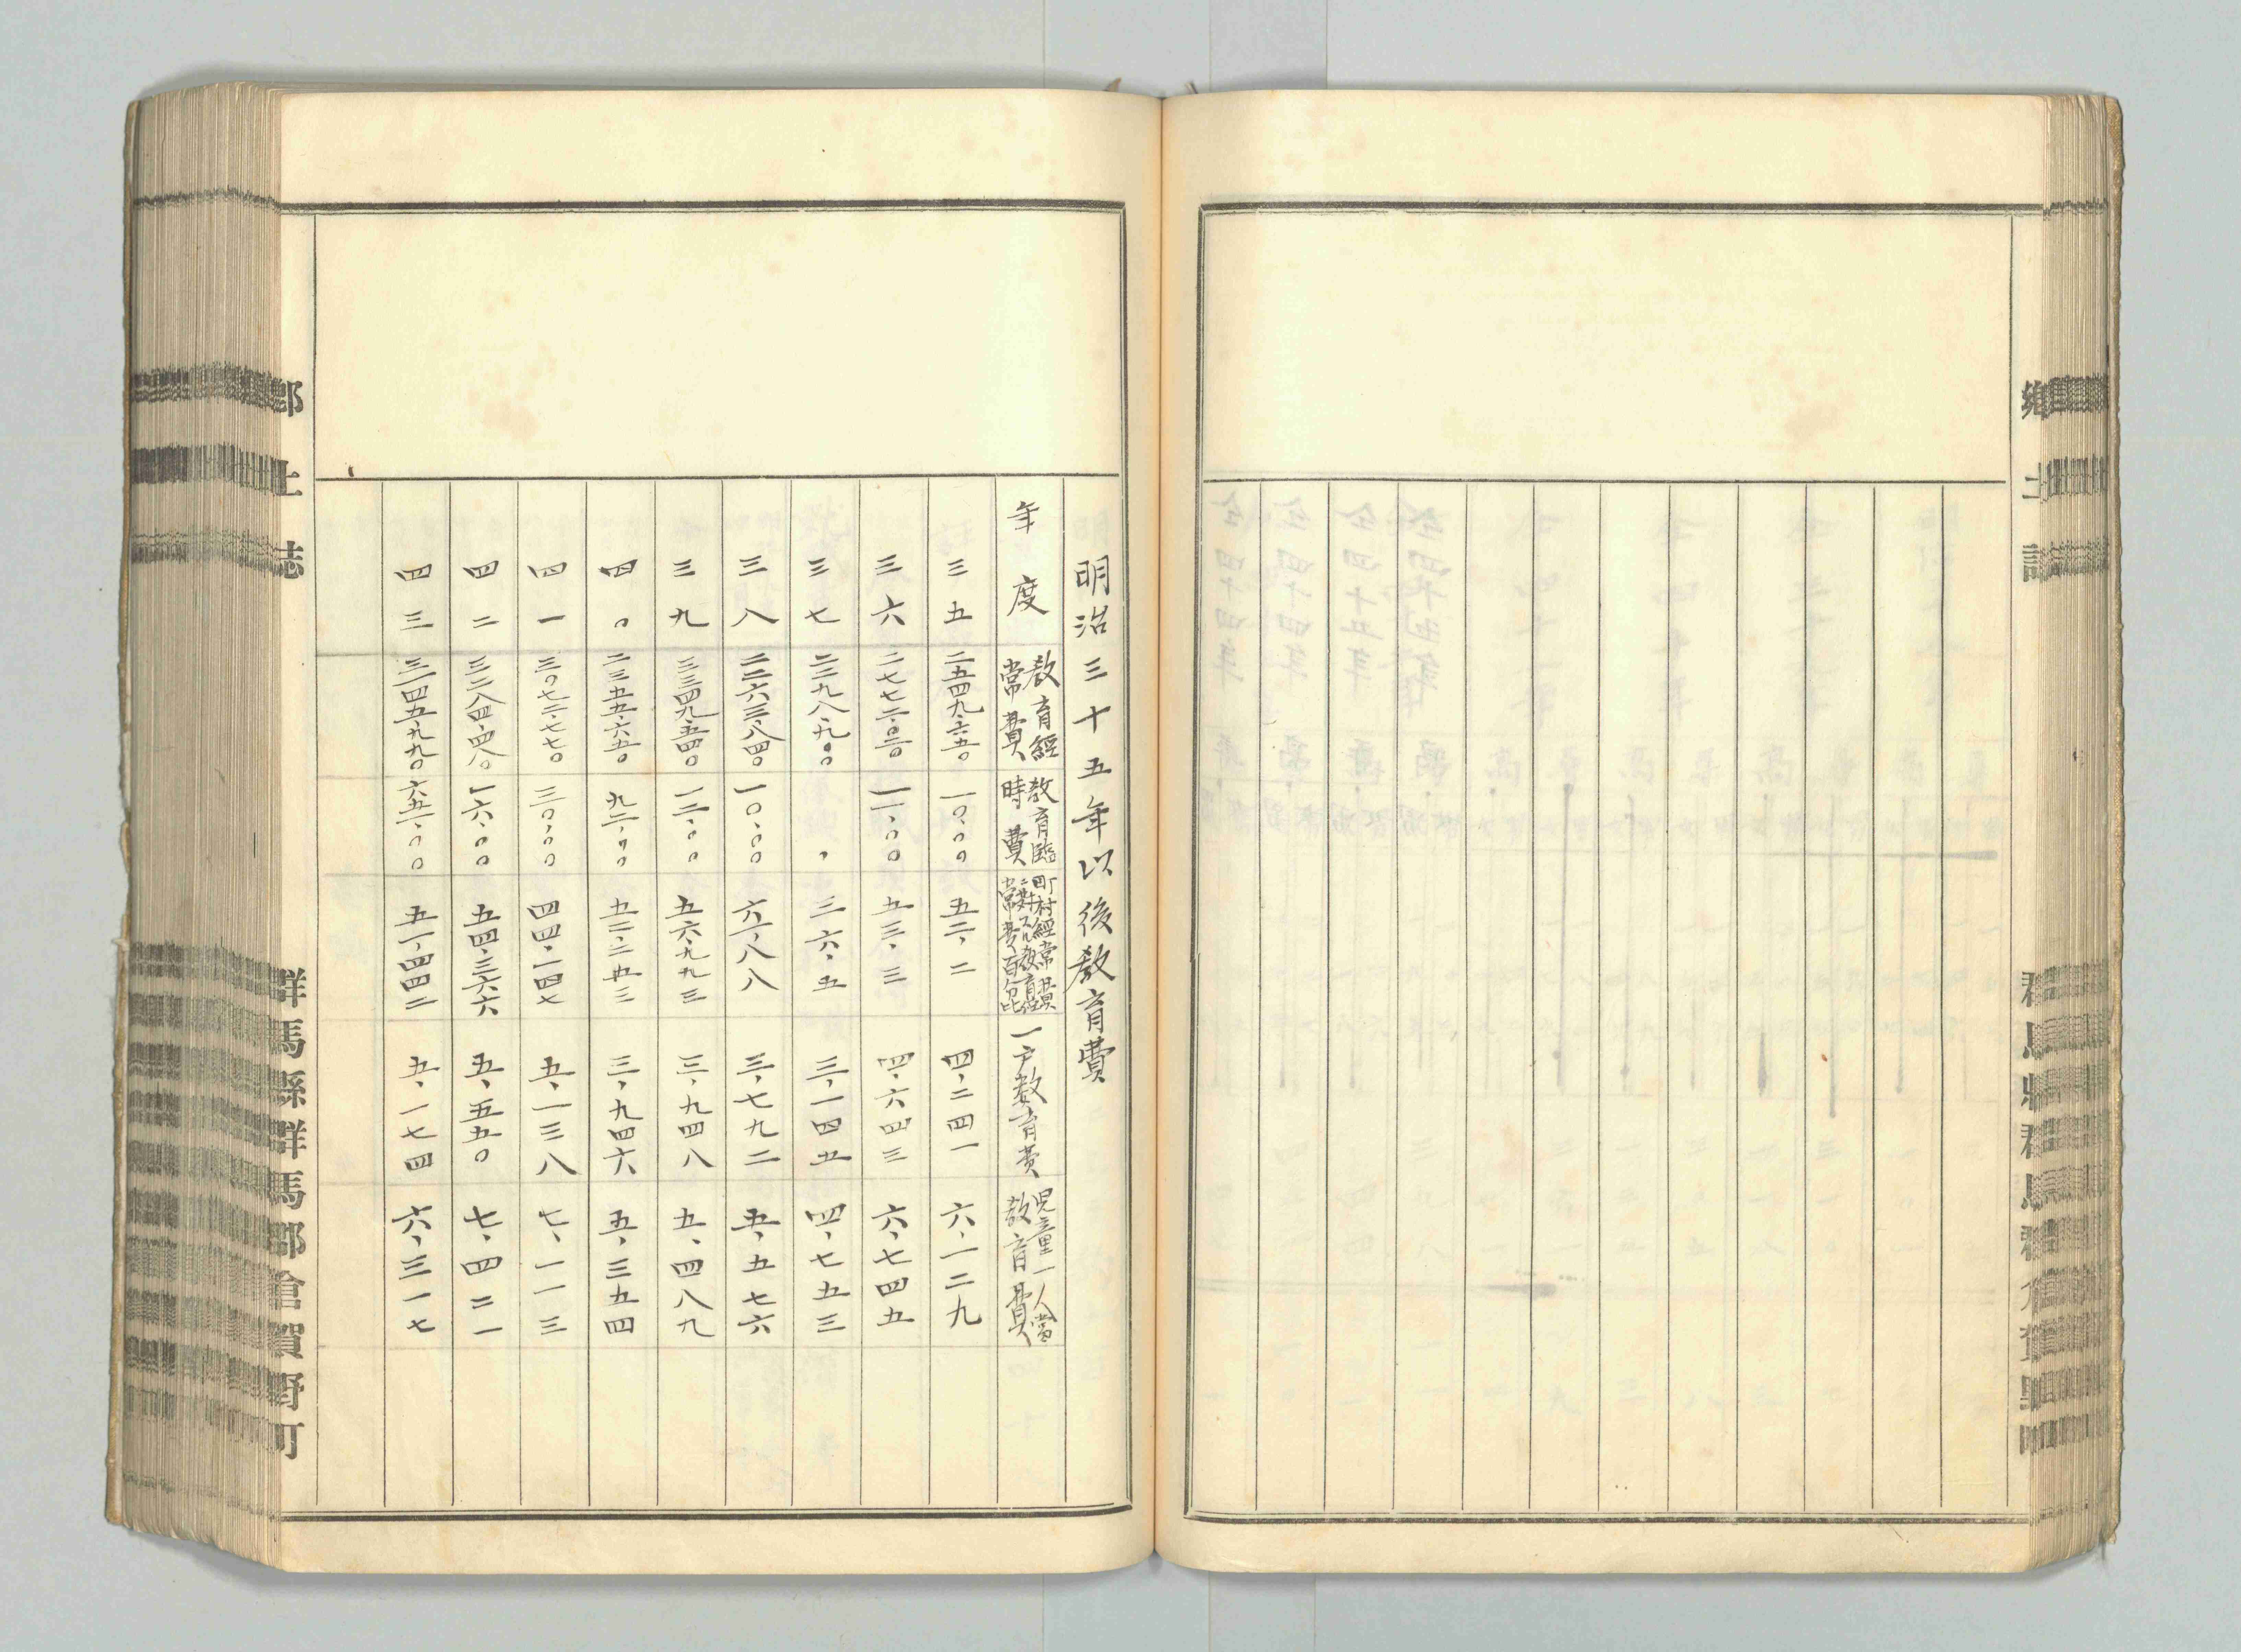 郷土誌
明治三十五年以後教育費
年度 教育經常費 教育臨時費 町村經常費ニ對スル教育經常費百分比 一戸教育費 児童一人當教育費
三五 二五四九、六五〇 一〇、〇〇 五二、二 四、二四一 六、一二九
三六 二七七二、〇二〇 一一、〇〇 五三、三 四、六四三 六、七四五
三七 二二九八、九〇〇 、 三六、五 三、一四五 四、七五三
三八 二二六三、八四〇 一〇、〇〇 六一、八八 三、七九二 五、五七六
三九 三三四九、五四〇 一二、〇〇 五六、九九三 三、九四八 五、四八九
四〇 二三五五、六五〇 九二、〇〇 五二、二五三 三、九四六 五、三五四
四一 三〇七二、七七〇 三〇、〇〇 四四、二四七 五、一三八 七、一一三
四二 三二八四、四八〇 一六、〇〇 五四、三六六 五、五五〇 七、四二一
四三 三一四五、九九〇 六五一、〇〇 五一、四四二 五、一七四 六、三一七
郷土誌
群馬縣群馬郡倉賀野町